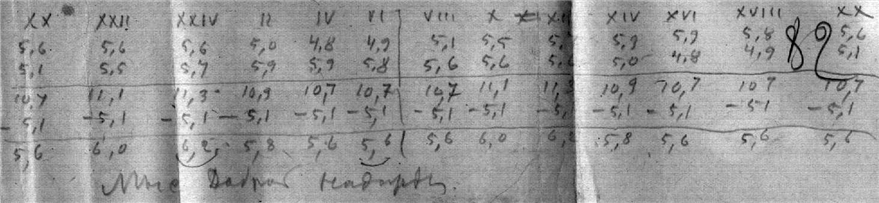 XX XXII XXIV II IV VI VIII X XII XIV XVI XVIII XX
5,6 5,6 5,6 5,0 4,8 4,9 5,1 5,5 5, 5,9 5,9 5,8 5,6
5,1 5,5 5,7 5,9 5,9 5,8 5,6 5,6 5,6 5,0 4,8 4,9 5,1
10,7 11,1 11,3 10,9 10,7 10,7 10,7 11,1 11,3 10,9 10,7 10,7 10,7
-5,1 -5,1 -5,1 -5,1 -5,1 -5,1 -5,1 -5,1 -5,1 -5,1 -5,1 -5,1 -5,1
5,6 6,0 6,2 5,8 5,6 5,6 5,6 6,0 6,2 5,8 5,6 5,6 5,6
82
Мыс Доброй Надежды.